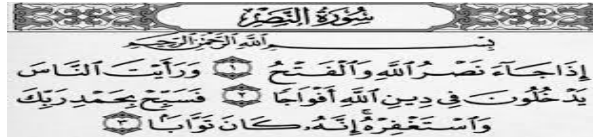 سُورَةُ النَّصْرِ
بِسْمِ اللَّهِ الرَّحْمَٰنِ الرَّحِيمِ
إِذَا جَآءَ نَصْرُ اللَّهِ وَالْفَتْحُ ١ وَرَأَيْتَ النَّاسَ
يَدْخُلُونَ فِي دِينِ اللَّهِ أَفْوَاجًا ٢ فَسَبِّحْ بِحَمْدِ رَبِّكَ
وَاسْتَغْفِرْهُ إِنَّهُ كَانَ تَوَّابًا ٣